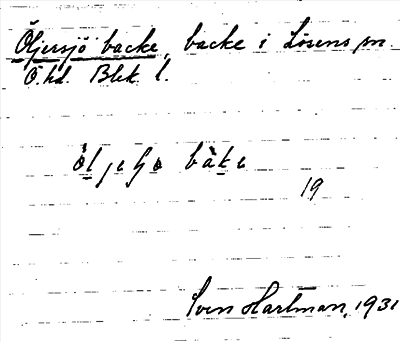 Öljersjö backe, backe i Lösens sn.
Ö. hd. Blek l.
öljeʃo bàke
19
Sven Hartman, 1931